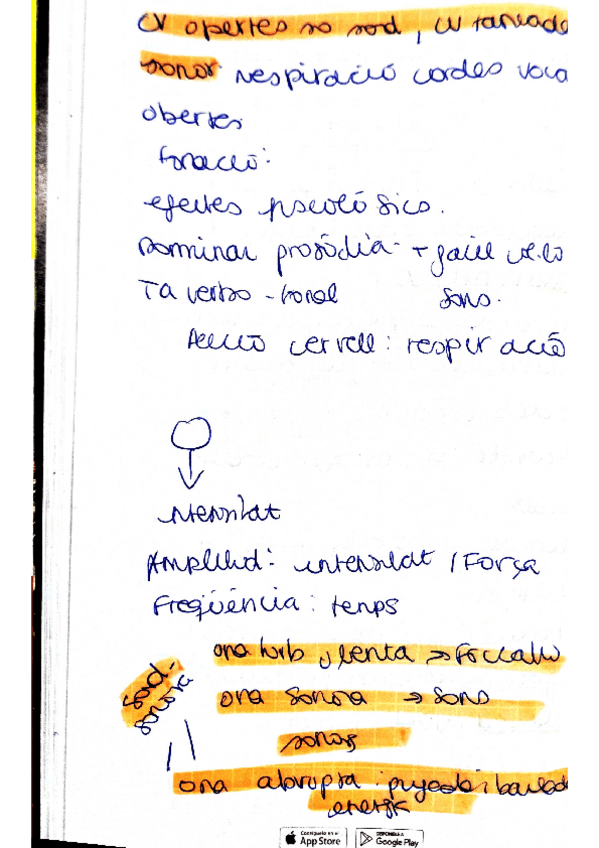 CV obertes so sord, CV tancade
sonor respiració cordes voca
obertes
fonació:
efectes psicológics.
Dominar prosòdia - + fàcil
TA verbo-tonal sons.
Acció cervell: respiració
intensitat
Amplitud: intensitat / Força
Freqüència: temps
ona turbulenta → fricatiu
sord-
sonora
ona sonora → sons
sonors
ona abrupta: pujada i baixada
energia
Consíguelo en el
App Store
DISPONIBLE EN
Google Play